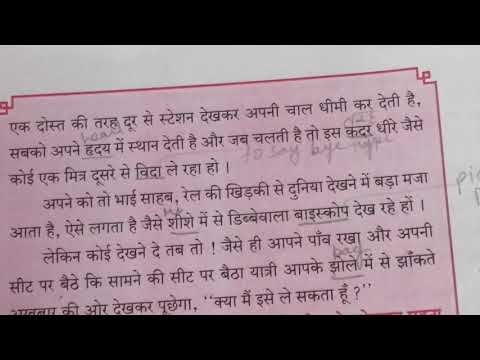 एक दोस्त की तरह दूर से स्टेशन देखकर अपनी चाल धीमी कर देती है,
heart
सबको अपने हृदय में स्थान देती है और जब चलती है तो इस कदर धीरे जैसे
to say bye
कोई एक मित्र दूसरे से विदा ले रहा हो ।
अपने को तो भाई साहब, रेल की खिड़की से दुनिया देखने में बड़ा मजा
आता है, ऐसे लगता है जैसे शीशे में से डिब्बेवाला बाइस्कोप देख रहे हों ।
लेकिन कोई देखने दे तब तो ! जैसे ही आपने पाँव रखा और अपनी
bag
सीट पर बैठे कि सामने की सीट पर बैठा यात्री आपके झोले में से झाँकते
अखबार की ओर देखकर पूछेगा, ‘‘क्या मैं इसे ले सकता हूँ ?’’